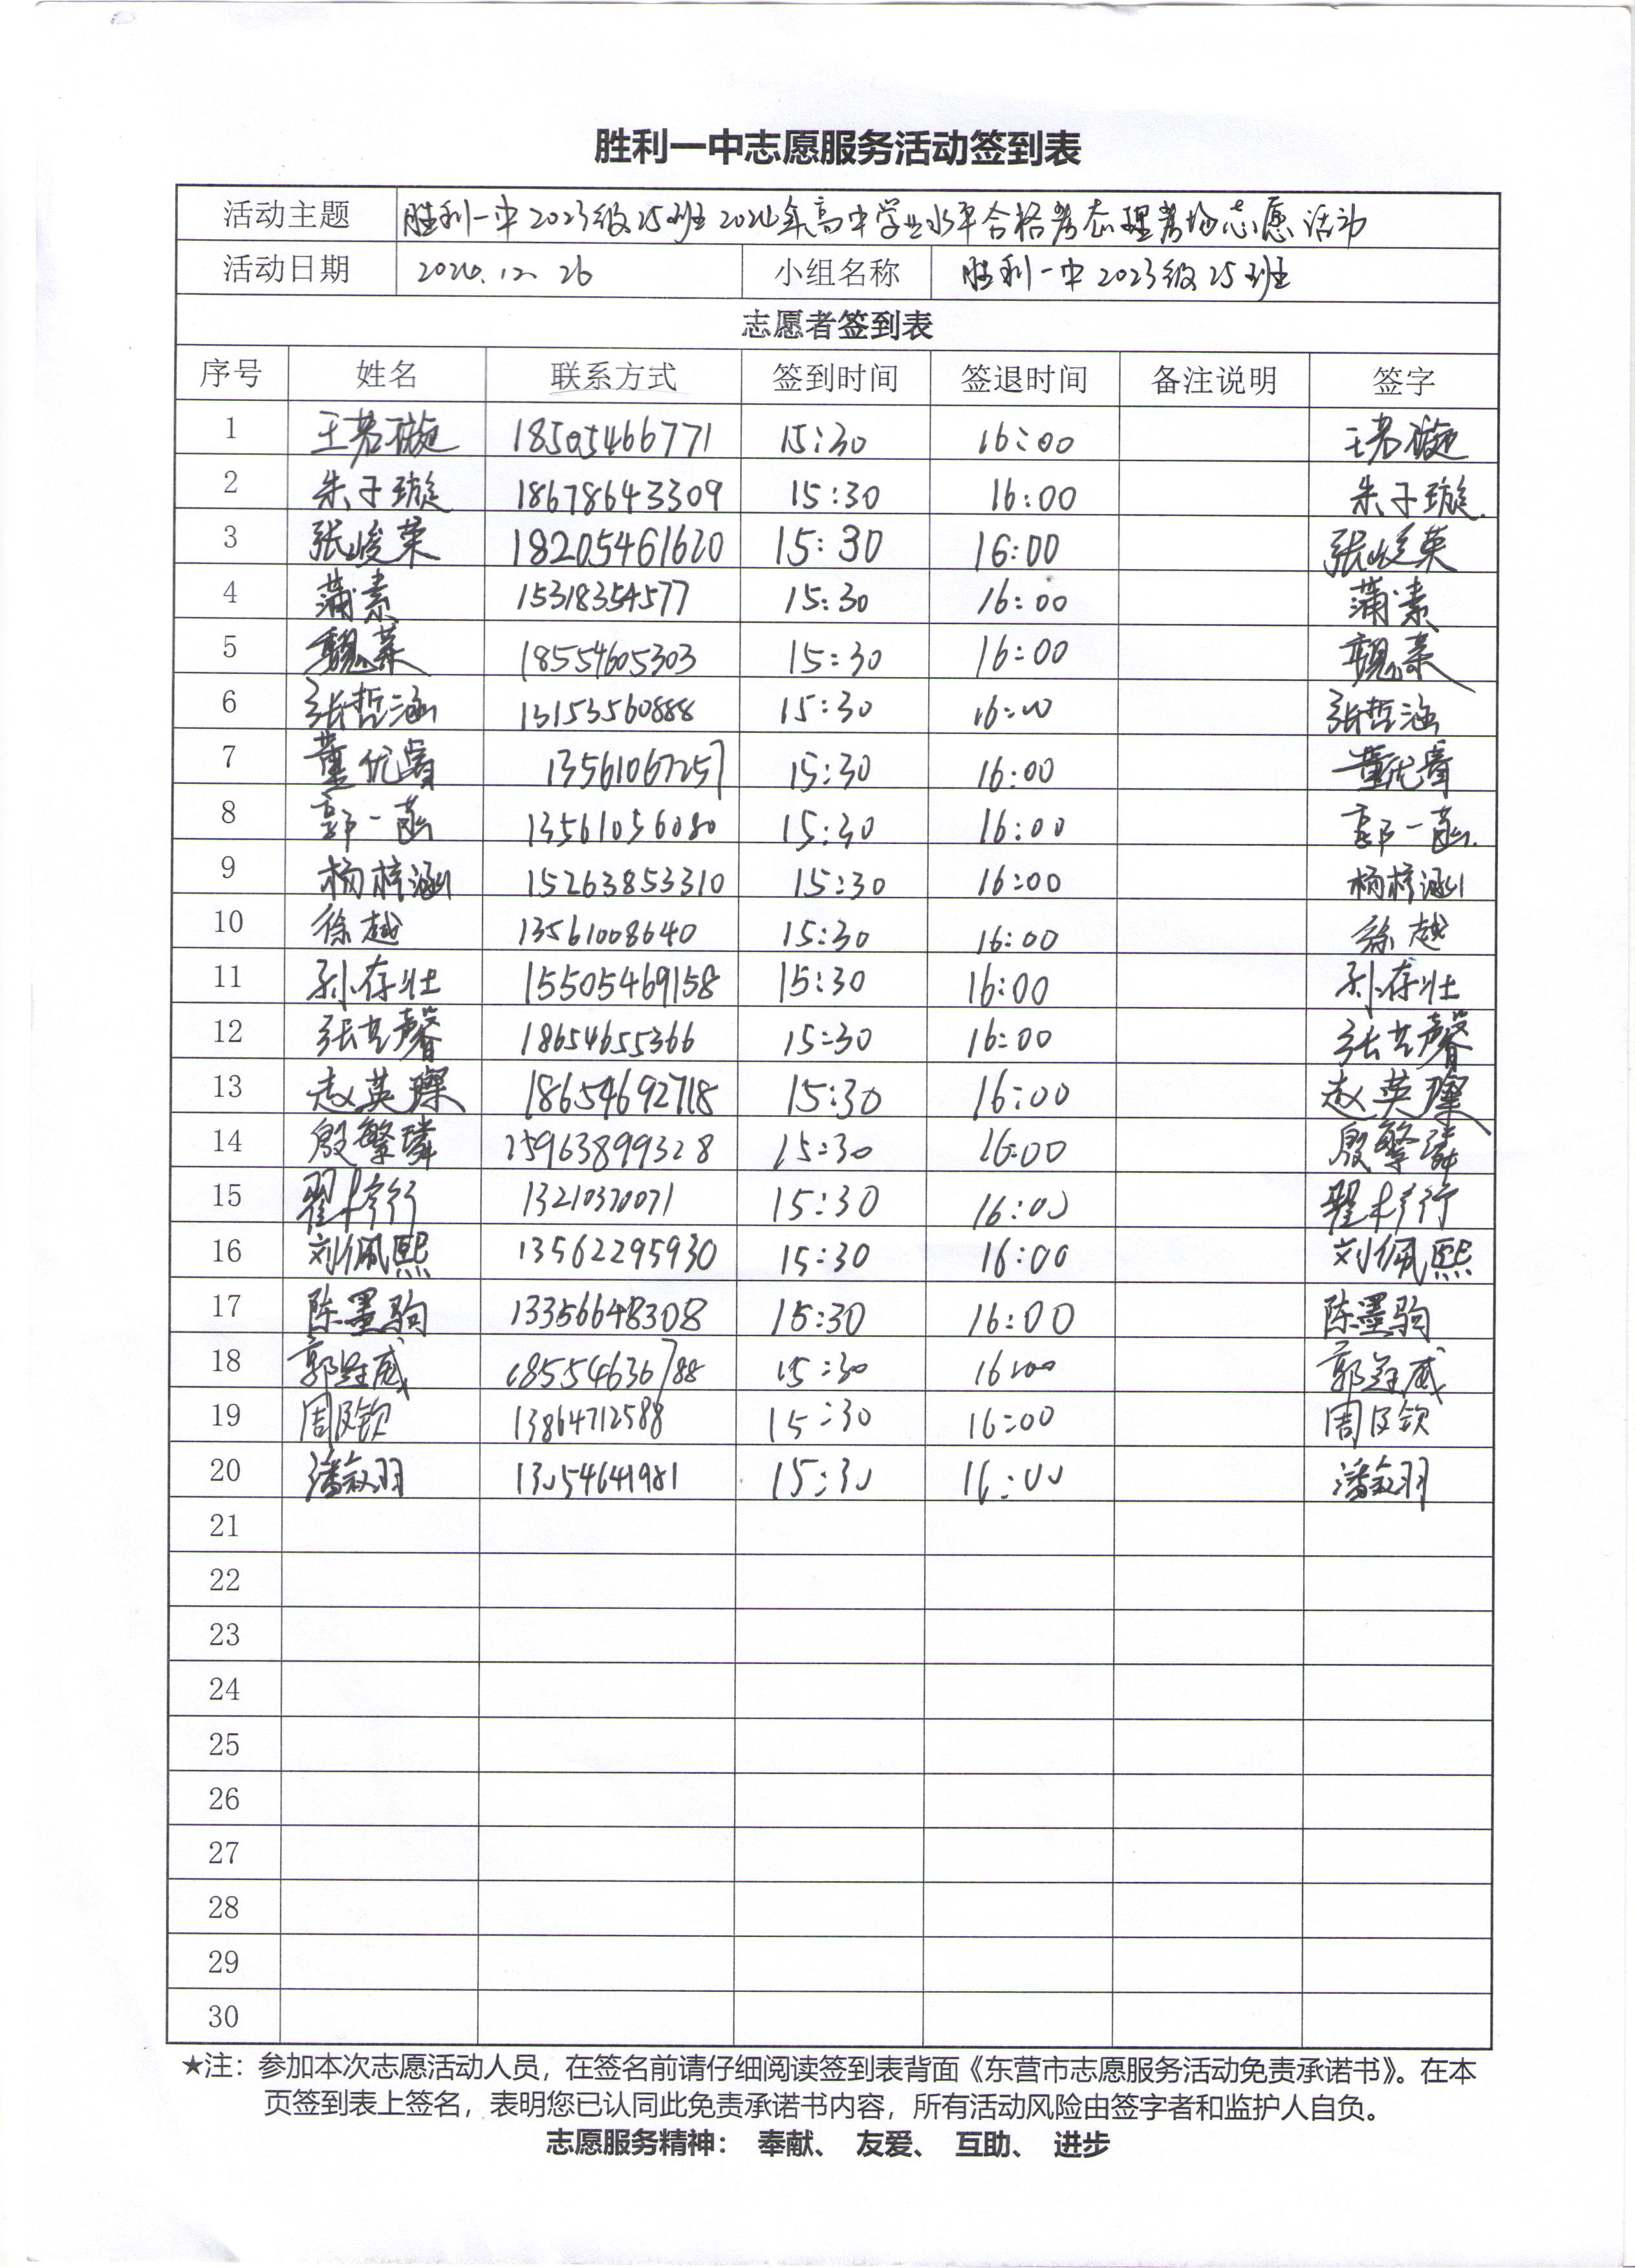 胜利一中志愿服务活动签到表
活动主题 胜利一中2023级25班2024年高中学业水平合格考态理考场志愿活动
活动日期 2024.12.26 小组名称 胜利一中2023级25班
志愿者签到表
序号 姓名 联系方式 签到时间 签退时间 备注说明 签字
1 王若璇 18505466771 15:30 16:00 王若璇
2 朱子璇 18678643309 15:30 16:00 朱子璇
3 张峻荣 18205461620 15:30 16:00 张峻荣
4 蒲素 15318354577 15:30 16:00 蒲素
5 魏菜 18554605303 15:30 16:00 魏菜
6 张哲涵 13153560888 15:30 16:00 张哲涵
7 董优 13561067257 15:30 16:00 董优
8 郭一菡 13561056080 15:30 16:00 郭一菡
9 杨梓涵 15263853310 15:30 16:00 杨梓涵
10 徐越 13561008640 15:30 16:00 徐越
11 孙存壮 15505469158 15:30 16:00 孙存壮
12 张艺馨 18654655366 15:30 16:00 张艺馨
13 赵英璨 18654692718 15:30 16:00 赵英璨
14 殷繁璘 15963899328 15:30 16:00 殷繁璘
15 翟梓行 13210370071 15:30 16:00 翟梓行
16 刘佩熙 13562295930 15:30 16:00 刘佩熙
17 陈墨驹 13356648308 15:30 16:00 陈墨驹
18 郭冠威 18554636788 15:30 16:00 郭冠威
19 周钦 13864712588 15:30 16:00 周钦
20 潘叙羽 13054641981 15:30 16:00 潘叙羽
21
22
23
24
25
26
27
28
29
30
★注：参加本次志愿活动人员，在签名前请仔细阅读签到表背面《东营市志愿服务活动免责承诺书》。在本
页签到表上签名，表明您已认同此免责承诺书内容，所有活动风险由签字者和监护人自负。
志愿服务精神： 奉献、 友爱、 互助、 进步